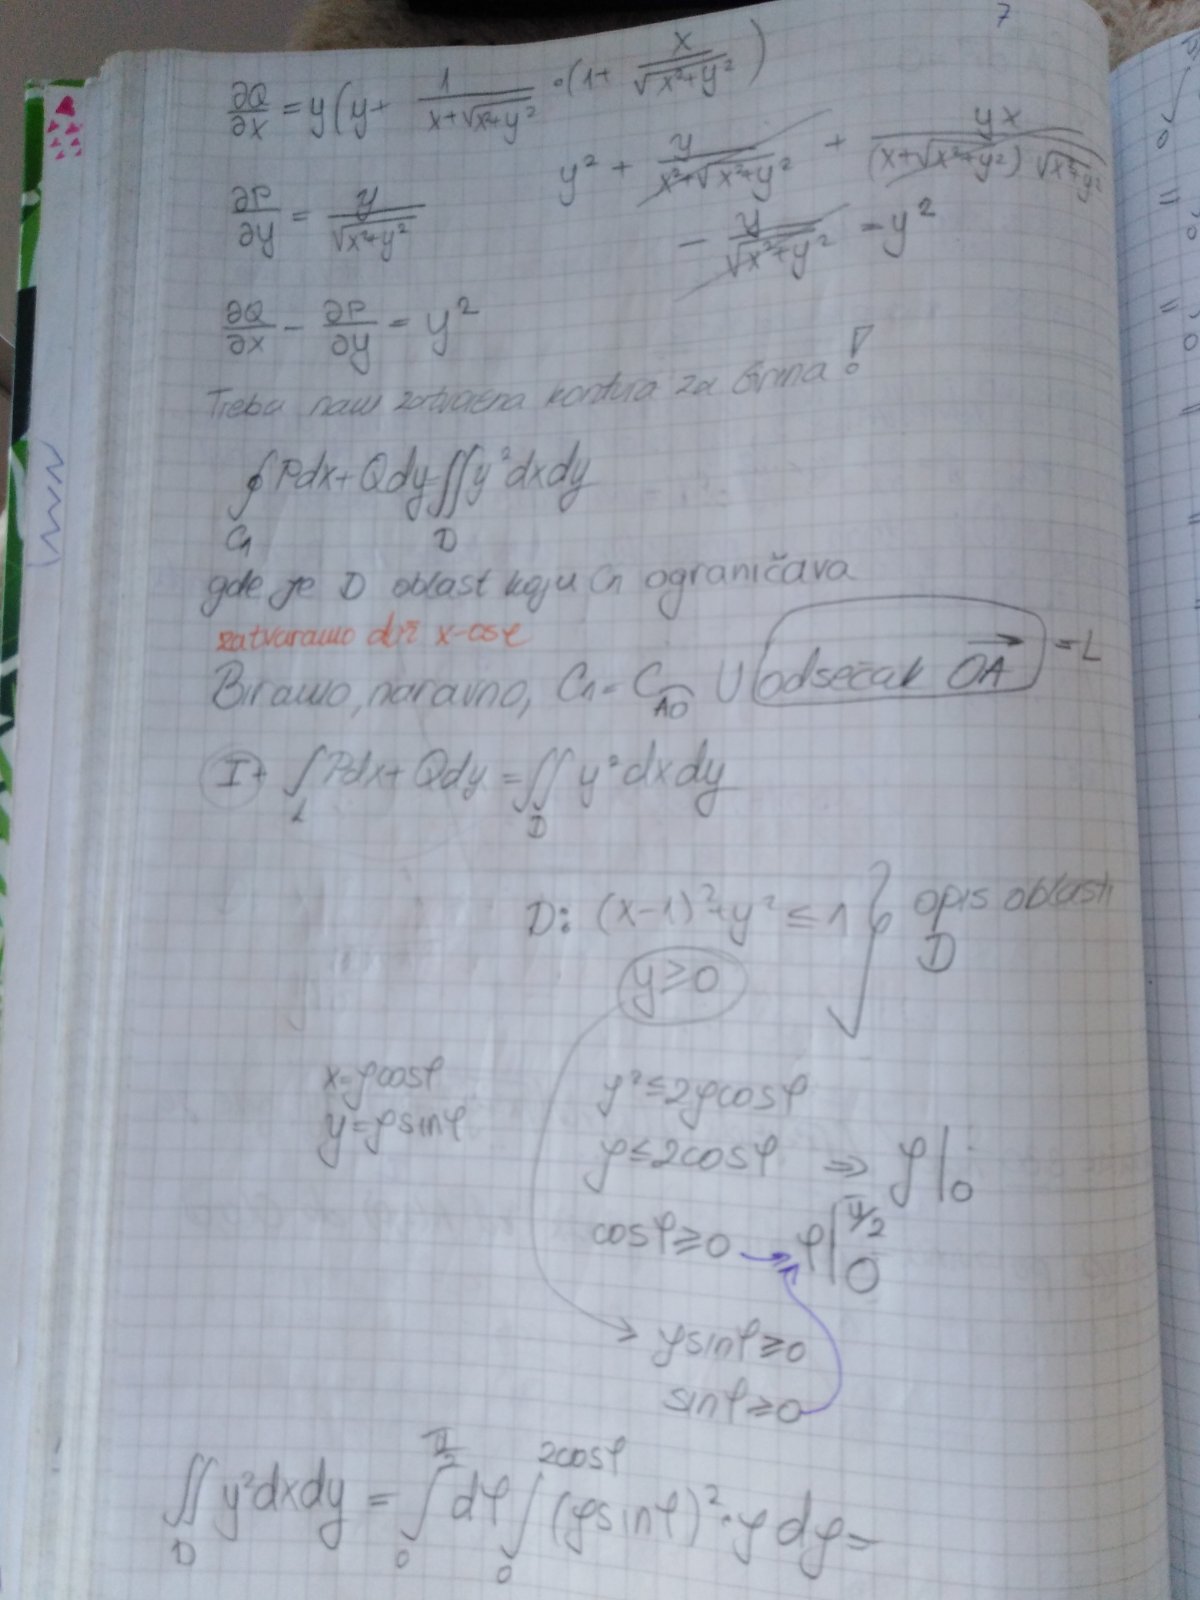 7
∂Q/∂x = y(y + 1/(x+√x²+y²) · (1 + x/√x²+y²))
y² + y/(x²+√x²+y²) + yx/((x+√x²+y²)√x²+y²)
∂P/∂y = y/√x²+y²
- y/√x²+y² - y²
∂Q/∂x - ∂P/∂y = y²
Treba nam zatvorena kontura za Grina!
∮C₁ Pdx + Qdy = ∬D y²dxdy
gde je D oblast koju C₁ ograničava
zatvaramo duž x-ose
Biramo, naravno, C₁ = C AO ∪ odsečak OA = L
I + ∫L Pdx + Qdy = ∬D y²dxdy
D: (x-1)²+y² ≤ 1 } opis oblasti D
y ≥ 0
x = ρcosφ
y = ρsinφ
ρ² ≤ 2ρcosφ
ρ ≤ 2cosφ ⇒ ρ|0
cosφ ≥ 0 → φ|0 π/2
ρsinφ ≥ 0
sinφ ≥ 0
∬D y²dxdy = ∫0 π/2 dφ ∫0 2cosφ (ρsinφ)² · ρ dρ =